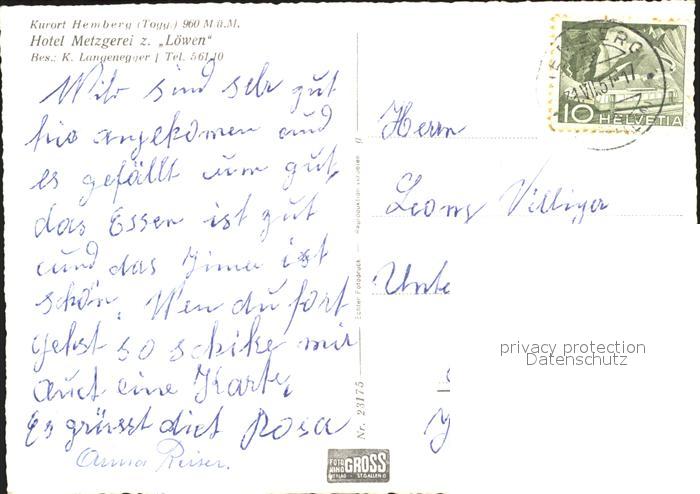 Kurort Hemberg (Togg.) 960 M ü.M.
Hotel Metzgerei z. „Löwen"
Bes.: K. Langenegger | Tel. 561 10
Wihr sind sehr gut
hir angekomen und
es gefällt um gut,
das Essen ist gut
und das Zimer ist
schön. Wen du fort
gehst so schike mir
auch eine Karte
Es grüsst dich Rosa
Anna Reiser.
Herrn
Leony Villiger
Unte
HEMBERG
10 HELVETIA
Echter Fotodruck — Reproduktion verboten
Nr. 23175
FOTO GROSS
ST. GALLEN
privacy protection
Datenschutz